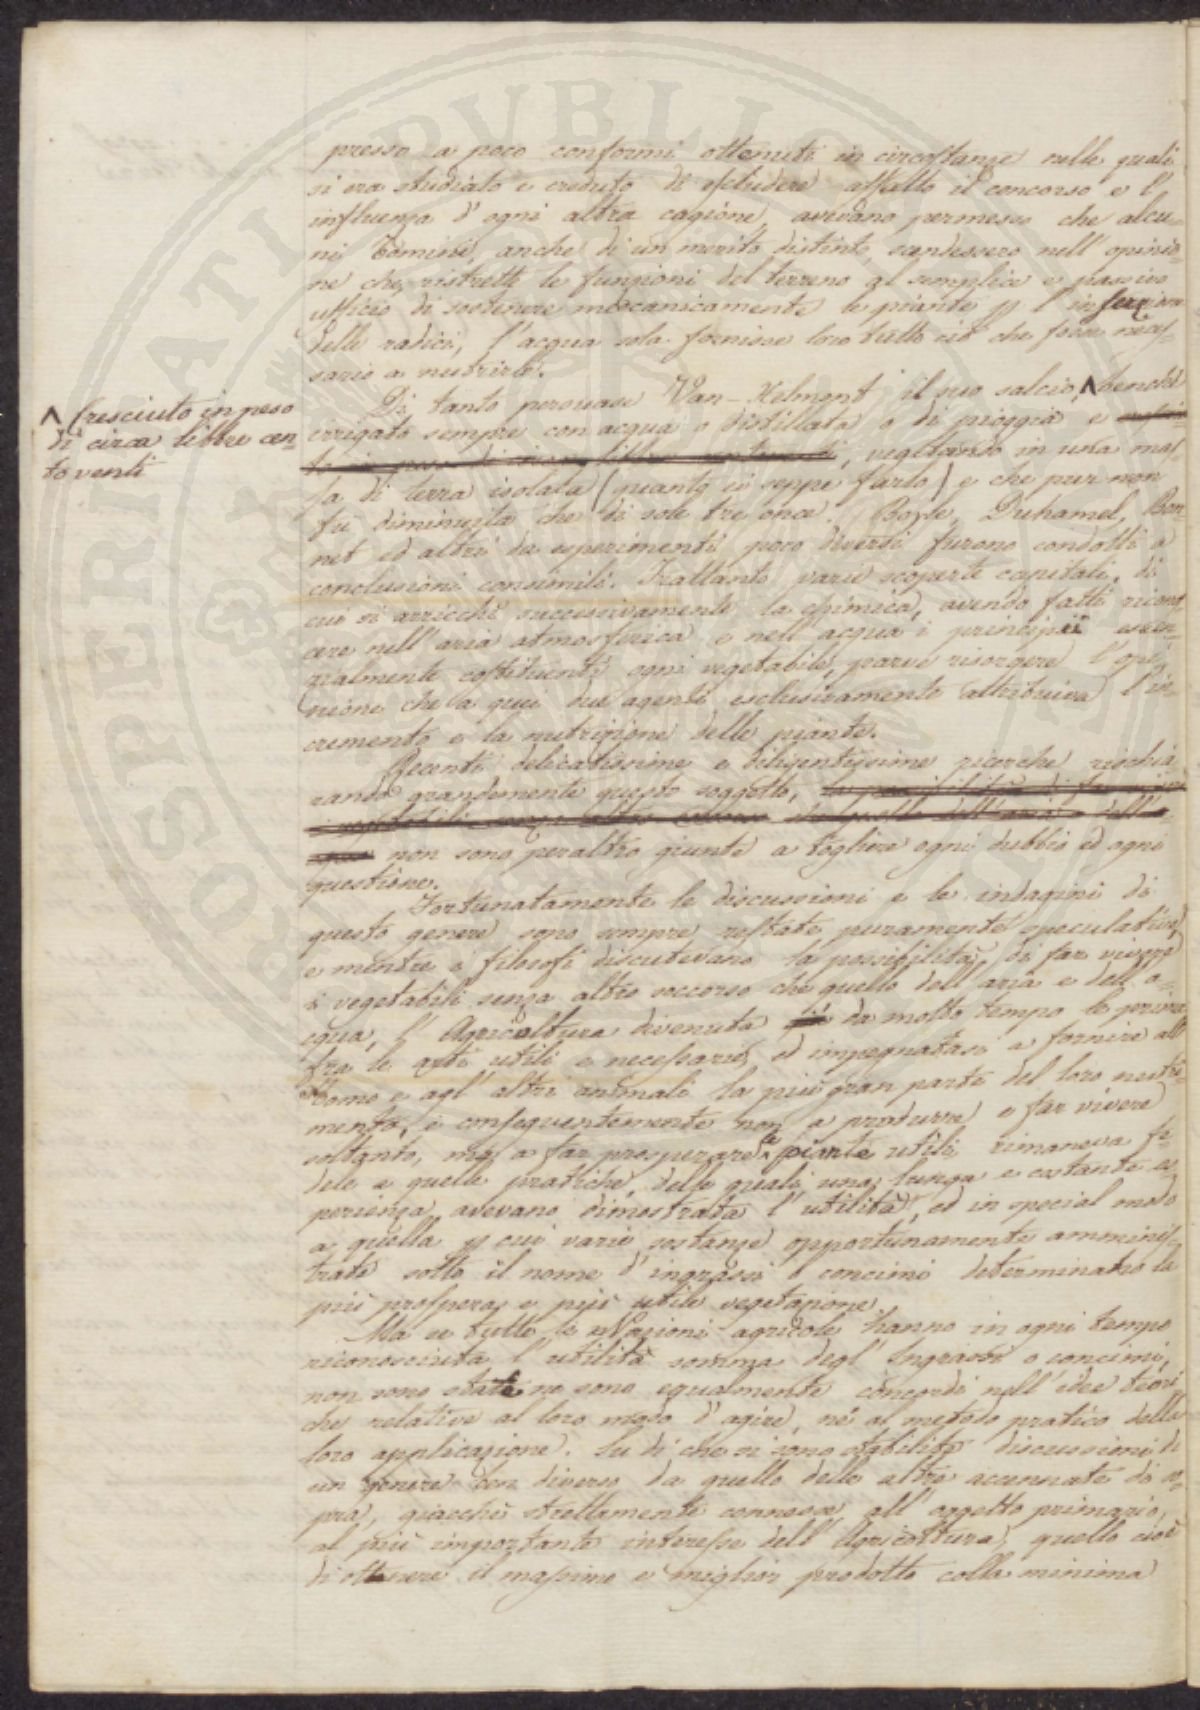 presso a poco conformi ottenuti in circostanze nelle quali
si era studiato e creduto di escludere affatto il concorso e l'
influenza d' ogni altra cagione, avevano permesso che alcu-
ni uomini, anche di un merito distinto, scendessero nell' opinio-
ne che, ristrette le funzioni del terreno al semplice e passivo
ufficio di sostenere meccanicamente le piante p l' inserzione
delle radici, l' acqua sola fornisse loro tutto ciò che fosse neces-
sario a nutrirle.
Di tanto persuase Van-Helmont il suo salcio, ^ benchè
^ Cresciuto in peso
di circa libbre cen-
to venti
irrigato sempre con acqua o distillata o di pioggia e
, vegetando in una mas-
sa di terra isolata (quanto ei seppe farlo) e che pur non
fù diminuita che di sole tre once. Boyle, Duhamel, Bon-
net ed altri da esperimenti poco diversi furono condotti a
conclusioni consimili. Frattanto varie scoperte capitali, di
cui si arricchì successivamente la chimica, avendo fatti ricono-
cere nell' aria atmosferica e nell' acqua i principii essen-
zialmente costituenti ogni vegetabile, parve risorgere l' opi-
nione che a quei due agenti esclusivamente attribuiva l' in-
cremento e la nutrizione delle piante.
Recenti delicatissime e diligentissime ricerche rischia
rando grandemente questo soggetto, la possibilità di far vivere
i vegetabili senza altro soccorso che quello dell' aria e dell' a-
cqua non sono peraltro giunte a togliere ogni dubbio ed ogni
questione.
Fortunatamente le discussioni e le indagini di
questo genere sono sempre restate puramente speculative,
e mentre i filosofi discutevano la possibilità di far vivere
i vegetabili senza altro soccorso che quello dell' aria e dell' a-
cqua, l' Agricoltura divenuta già da molto tempo la prima
fra le arti utili e necessarie, ed impegnatasi a fornire all'
Uomo e agl' altri animali la più gran parte del loro nutri-
mento, e conseguentemente non a produrre e far vivere
soltanto, ma a far prosperare le piante utili rimaneva fe-
dele a quelle pratiche, delle quali una lunga e costante es-
perienza avevano dimostrata l' utilità, ed in special modo
a quella p cui varie sostanze opportunamente amminis-
trate sotto il nome d' ingrassi o concimi determinano la
più prospera e più utile vegetazione.
Ma se tutte le Nazioni agricole hanno in ogni tempo
riconosciuta l' utilità somma degl' Ingrassi o concimi,
non sono state ne sono egualmente concordi nell' idee teori
che relative al loro modo d' agire, nè al metodo pratico della
loro applicazione. Su di che si sono stabilite discussioni di
un genere ben diverso da quello delle altre accennate di so-
pra, giacchè strettamente connesse all' oggetto primario,
al più importante interesse dell' Agricoltura, quello cioè
di ottenere il massimo e miglior prodotto colla minima